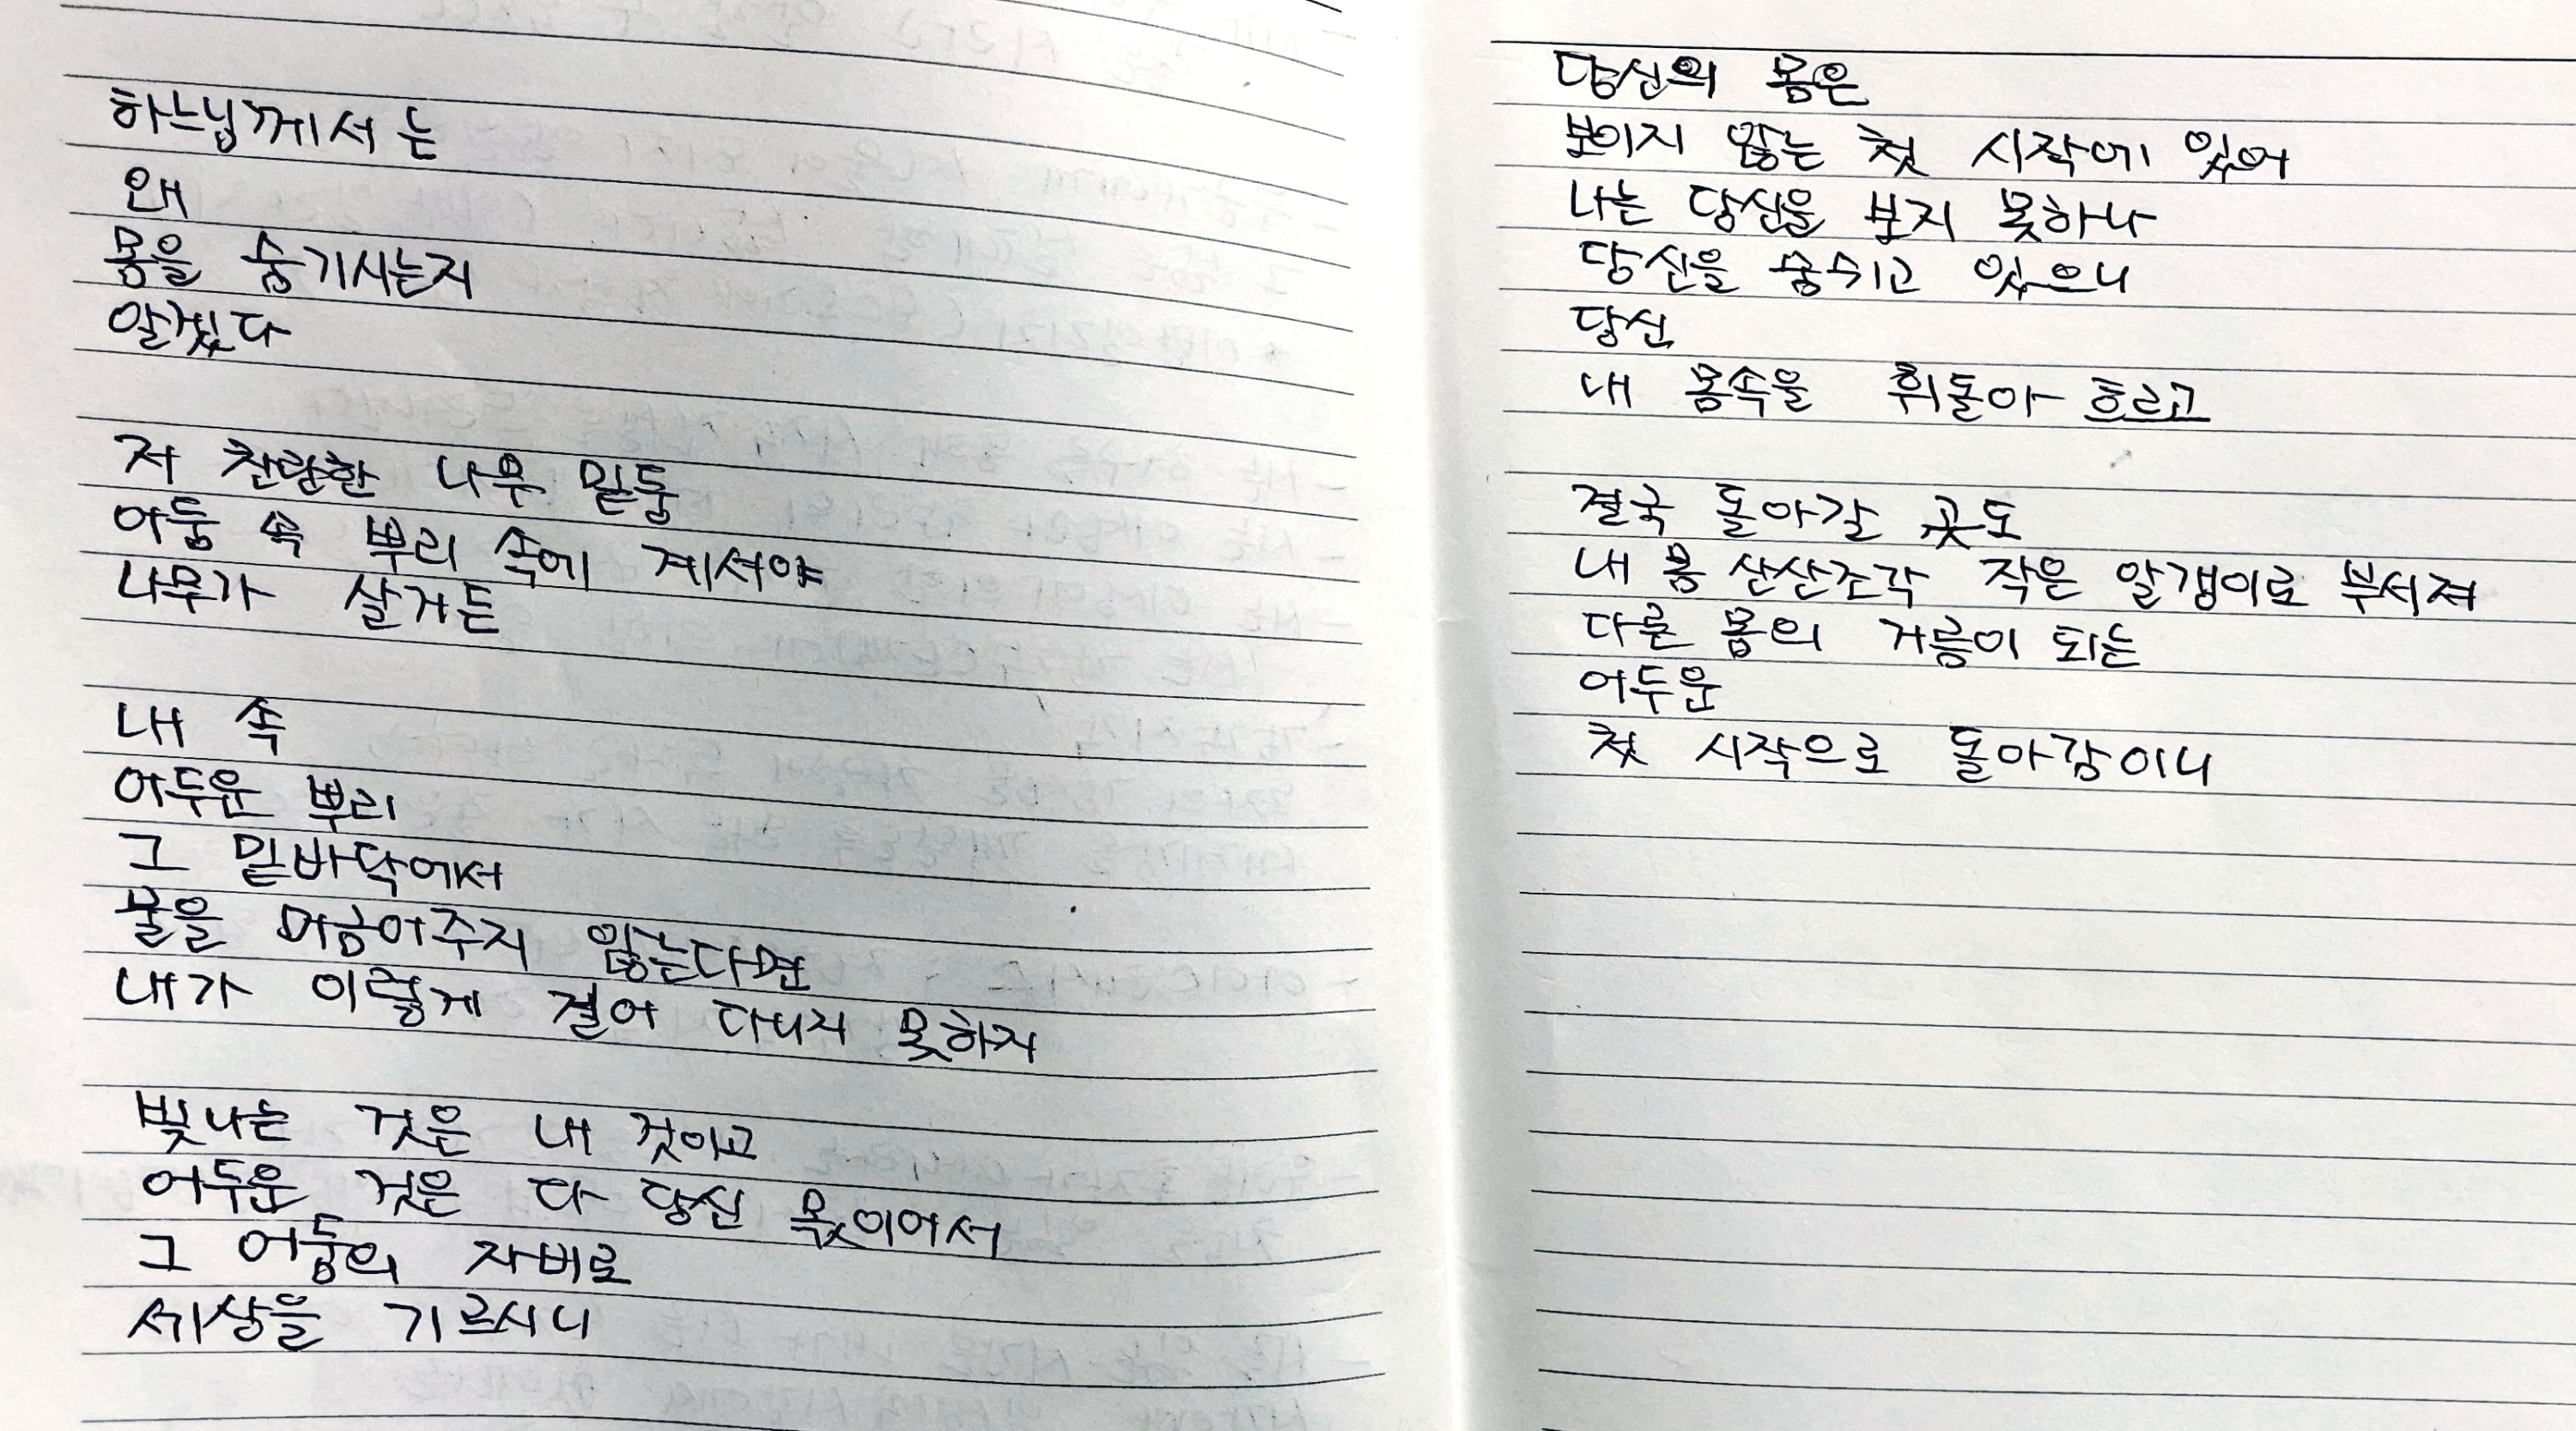 하느님께서는
왜
몸을 숨기시는지
알겠다
저 찬란한 나무 밑둥
어둠 속 뿌리 속에 계셔야
나무가 살거든
내 속
어두운 뿌리
그 밑바닥에서
물을 머금어주지 않는다면
내가 이렇게 걸어 다니지 못하지
빛나는 것은 내 것이고
어두운 것은 다 당신 몫이어서
그 어둠의 자비로
세상을 기르시니
당신의 몸은
보이지 않는 첫 시작에 있어
나는 당신을 보지 못하나
당신을 숨쉬고 있으니
당신
내 몸속을 휘돌아 흐르고
결국 돌아갈 곳도
내 몸 산산조각 작은 알갱이로 부서져
다른 몸의 거름이 되는
어두운
첫 시작으로 돌아감이니